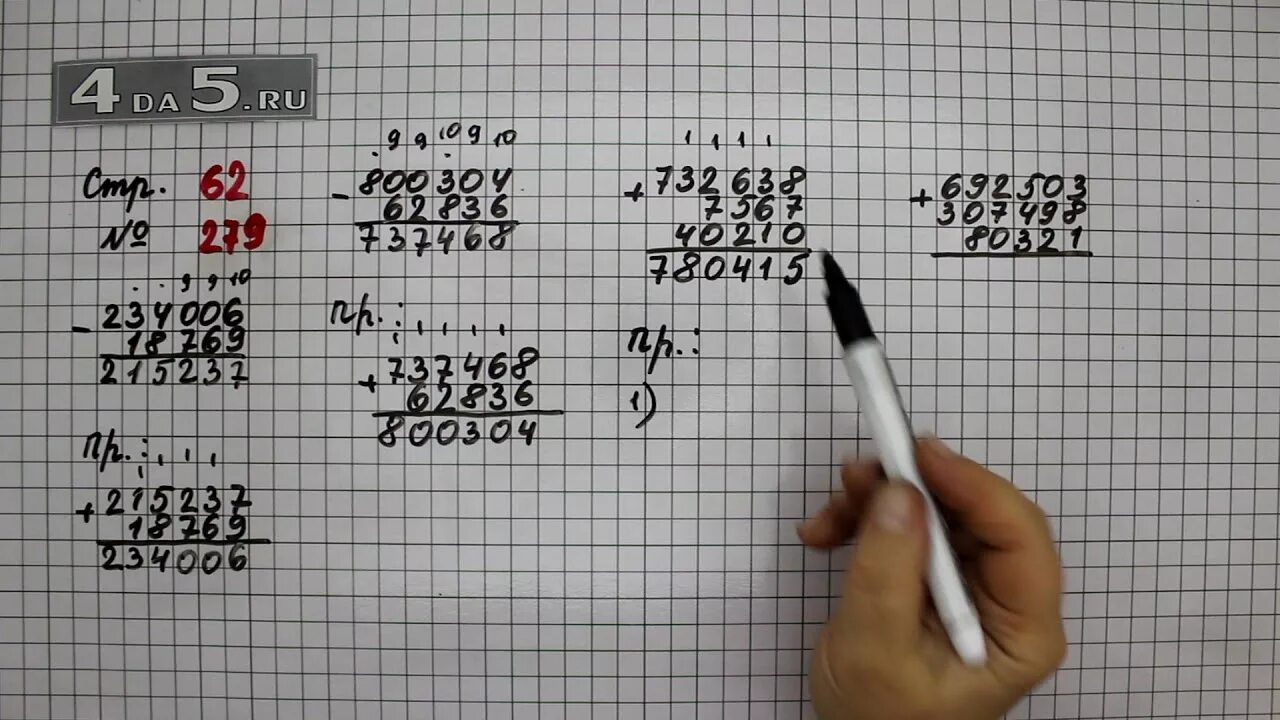 4DA5.RU
Стр. 62
№ 279
. . 9 9 10
- 234006
18769
215237
пр.:
1 1 1 1
+ 215237
18769
234006
. 9 9 10 9 10
- 800304
62836
737468
пр.:
1 1 1 1 1
+ 737468
62836
800304
1 1 1 1
+ 732638
7567
40210
780415
пр.:
1)
+ 692503
307498
80321